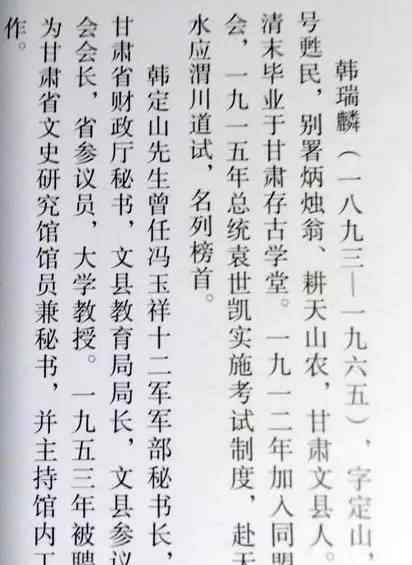 韩瑞麟（一八九三—一九六五），字定山，
号甦民，别署炳烛翁、耕天山农，甘肃文县人。
清末毕业于甘肃存古学堂。一九一二年加入同盟
会，一九一五年总统袁世凯实施考试制度，赴天
水应渭川道试，名列榜首。
韩定山先生曾任冯玉祥十二军军部秘书长，
甘肃省财政厅秘书，文县教育局局长，文县参议
会会长，省参议员，大学教授。一九五三年被聘
为甘肃省文史研究馆馆员兼秘书，并主持馆内工
作。